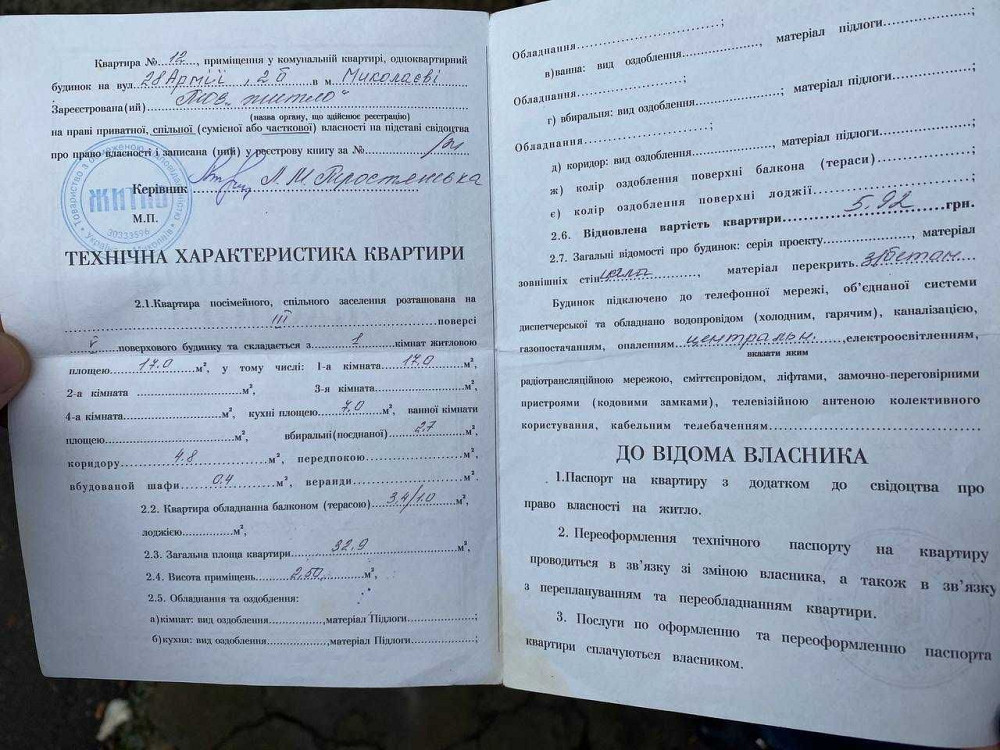 Квартира № 12, приміщення у комунальній квартирі, одноквартирний
будинок на вул. 28 Армії, 2б в м. Миколаєві
Зареєстрована(ий) ТЮВ „Житло"
(назва органу, що здійснює реєстрацію)
на праві приватної, спільної (сумісної або часткової) власності на підставі свідоцтва
про право власності і записана (ний) у реєстрову книгу за №
Керівник Л.М.
М.П.
Товариство з обмеженою відповідальністю
ЖИТЛО
30333596
Україна Миколаїв
ТЕХНІЧНА ХАРАКТЕРИСТИКА КВАРТИРИ
2.1.Квартира посімейного, спільного заселення розташована на
III поверсі
V поверхового будинку та складається з 1 кімнат житловою
площею 17.0 м², у тому числі: 1-а кімната 17.0 м²,
2-а кімната м², 3-я кімната м²,
4-а кімната м², кухні площею 7,0 м², ванної кімнати
площею м², вбиральні(поєднаної) 2.7 м²,
коридору 4.8 м², передпокою м²,
вбудованої шафи 0.4 м², веранди м².
2.2. Квартира обладнанна балконом (терасою) 3,4/1.0 м²,
лоджією м²,
2.3. Загальна площа квартири 32,9 м²,
2.4. Висота приміщень 2,50 м²,
2.5. Обладнання та оздоблення:
а)кімнат: вид оздоблення ,матеріал Підлоги ;
б)кухня: вид оздоблення ,матеріал Підлоги ;
Обладнання ;
в)ванна: вид оздоблення , матеріал підлоги ;
Обладнання ;
г) вбиральня: вид оздоблення ; матеріал підлоги ;
Обладнання ;
д) коридор: вид оздоблення , матеріал підлоги ;
ж) колір оздоблення поверхні балкона (тераси) ;
є) колір оздоблення поверхні лоджії ;
2.6. Відновлена вартість квартири 5,92 грн.
2.7. Загальні відомості про будинок: серія проекту , матеріал
зовнішніх стін , матеріал перекрить з/бетон
Будинок підключено до телефонної мережі, об'єднаної системи
диспетчерської та обладнано водопровідом (холодним, гарячим), каналізацією,
газопостачанням, опаленням центральн. ,електроосвітленням,
вказати яким
радіотрансляційною мережою, сміттєпровідом, ліфтами, замочно-переговірними
пристроями (кодовими замками), телевізійною антеною колективного
користування, кабельним телебаченням
ДО ВІДОМА ВЛАСНИКА
1.Паспорт на квартиру з додатком до свідоцтва про
право власності на житло.
2. Переоформлення технічного паспорту на квартиру
проводиться в зв'язку зі зміною власника, а також в зв'язку
з переплануванням та переобладнанням квартири.
3. Послуги по оформленню та переоформленню паспорта
квартири сплачуються власником.